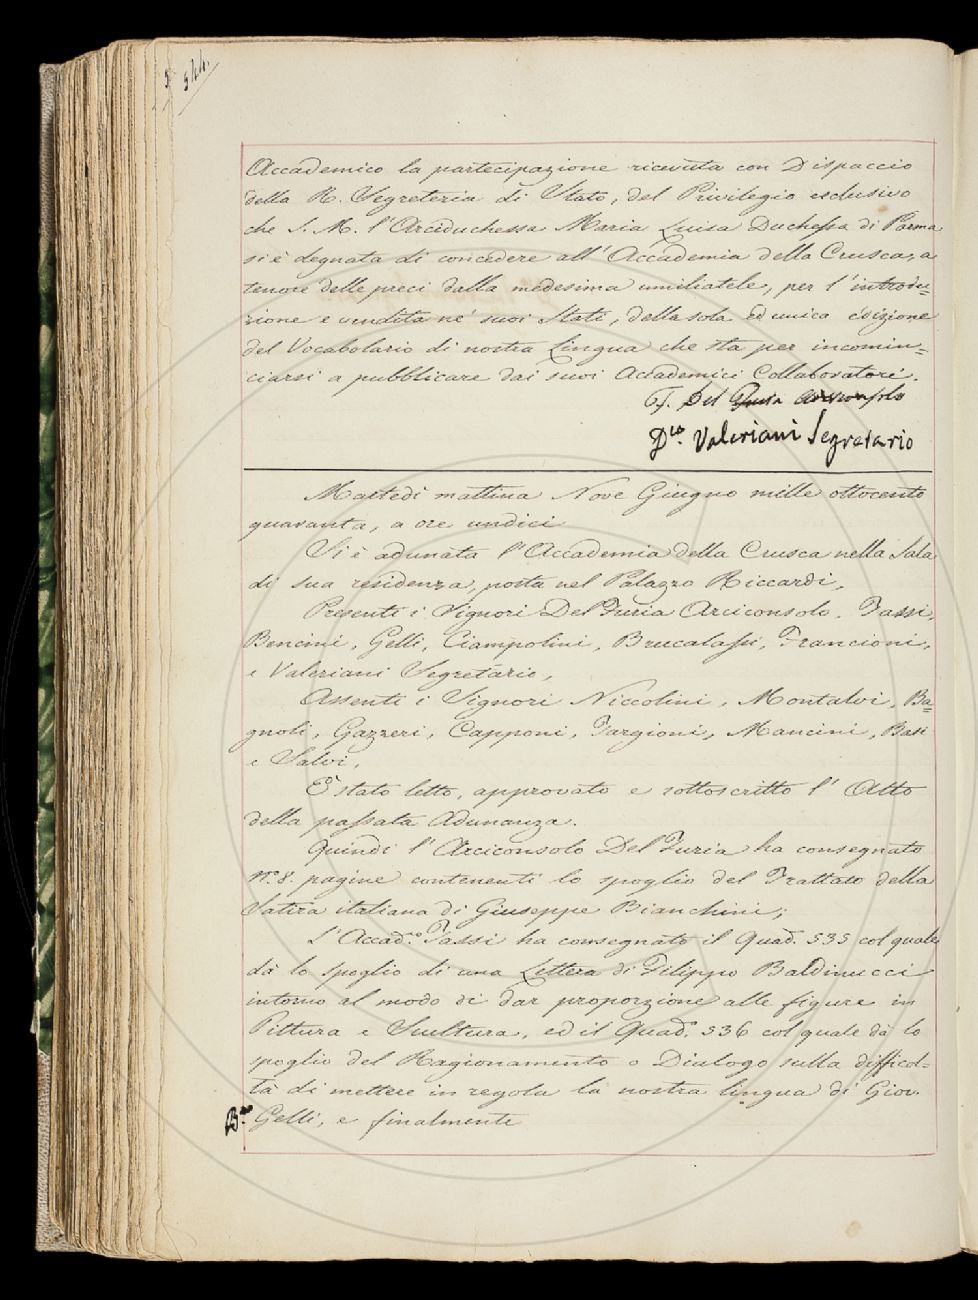 544.
Accademico la partecipazione ricevuta con Dispaccio
della R. Segreteria di Stato, del Privilegio esclusivo
che S. M. l'Arciduchessa Maria Luisa Duchessa di Parma
si è degnata di concedere all'Accademia della Crusca, a
tenore delle preci dalla medesima umiliatele, per l'introdu=
zione e vendita ne' suoi Stati, della sola ed unica edizione
del Vocabolario di nostra Lingua che sta per incomin=
ciarsi a pubblicare dai suoi Accademici Collaboratori.
Del Furia Arciconsolo
Valeriani Segretario
Martedì mattina Nove Giugno mille ottocento
quaranta, a ore undici
Si è adunata l'Accademia della Crusca nella Sala
di sua residenza, posta nel Palazzo Riccardi,
Presenti i Signori Del Furia Arciconsolo. Tassi,
Bencini, Gelli, Ciampolini, Brucalassi, Francioni,
e Valeriani Segretario,
Assenti i Signori Niccolini, Montalvi, Ba=
gnoli, Gazzeri, Capponi, Targioni, Mancini, Basi
e Salvi.
È stato letto, approvato e sottoscritto l'Atto
della passata Adunanza.
Quindi l'Arciconsolo Del Furia ha consegnato
N.º 8. pagine contenenti lo spoglio del Trattato della
Satira italiana di Giuseppe Bianchini;
L'Accad.º Tassi ha consegnato il Quad. 535 col quale
dà lo spoglio di una Lettera di Filippo Baldinucci
intorno al modo di dar proporzione alle figure in
Pittura e Scultura, ed il Quad. 536 col quale dà lo
spoglio del Ragionamento o Dialogo sulla difficol=
tà di mettere in regola la nostra lingua di Giov.
B.ª Gelli, e finalmente